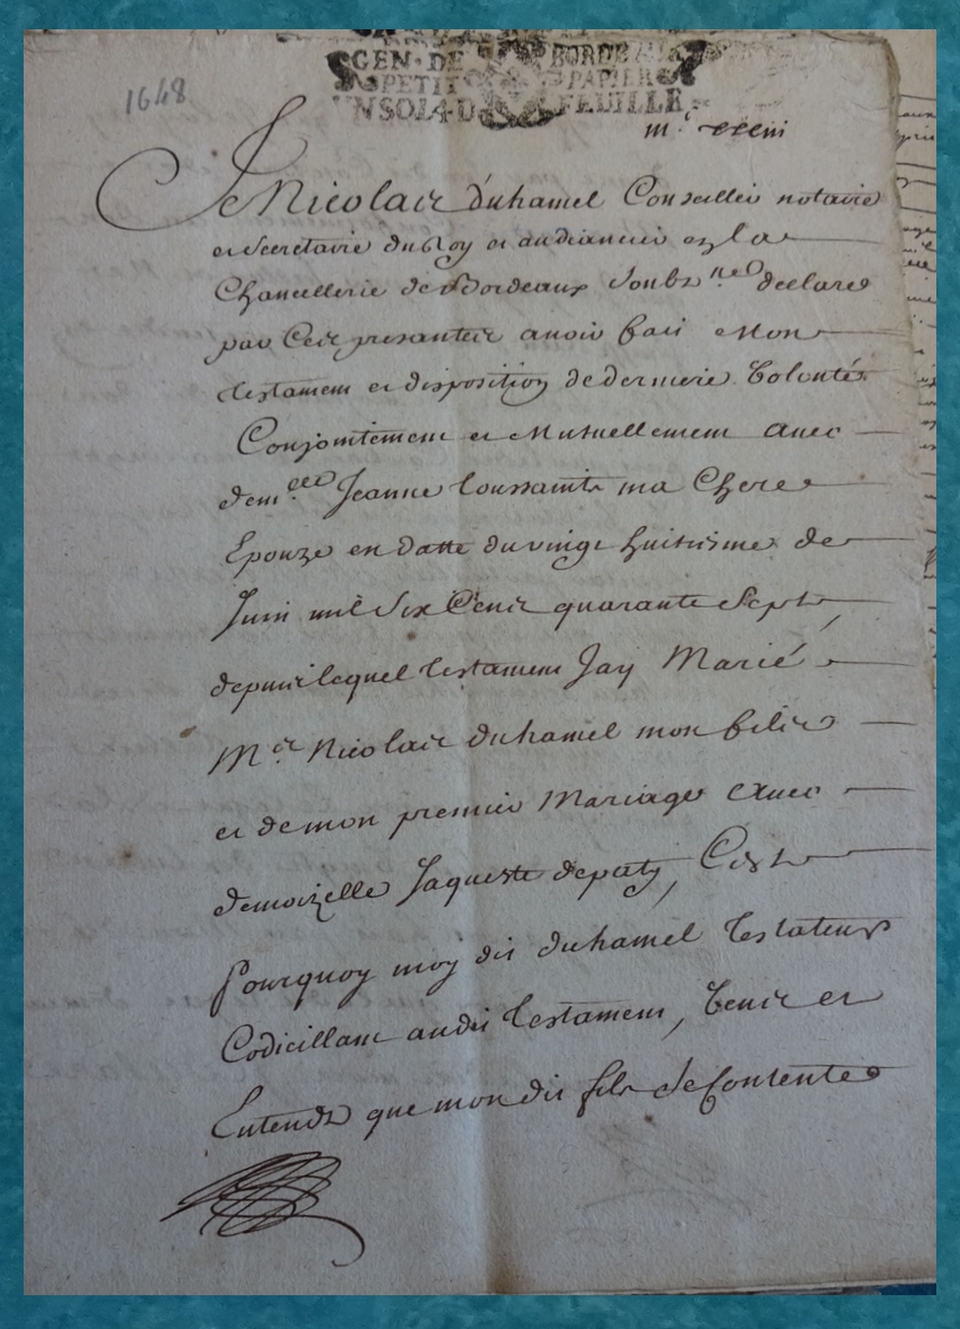 1648
GEN·DE BORDEAU
PETIT PAPIER
UNSOL4D LFEUILLE
Je Nicolais duhamel Conseiller notaire
et Secretaire du Roy et audiancier ez la
Chancellerie de Bordeaux Soubz.ne declare
par Ces presantes avoir fait Mon
testament et disposition de derniere Volonté
Conjointement et Mutuellement avec
dem.elle Jeanne toussainte ma Chere
Epouze en datte du vingt huitiesme de
Juin mil Six Cent quarante Sept,
depuis lequel testament Jay Marié
M.es Nicolais duhamel mon filz
et de mon premier Mariage Avec
demoizelle Jaqueste depaty, C'est
Pourquoy moy dit duhamel testateur
Codicillant audit testament, Veux et
Entendz que mon dit filz se Contente